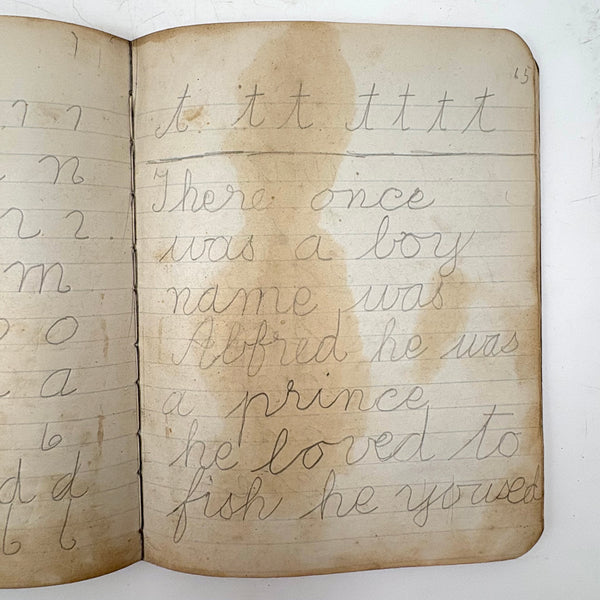 n
m
o
a
d d
15
t t t t t t t
There once
was a boy
name was
Alfred he was
a prince
he loved to
fish he yoused